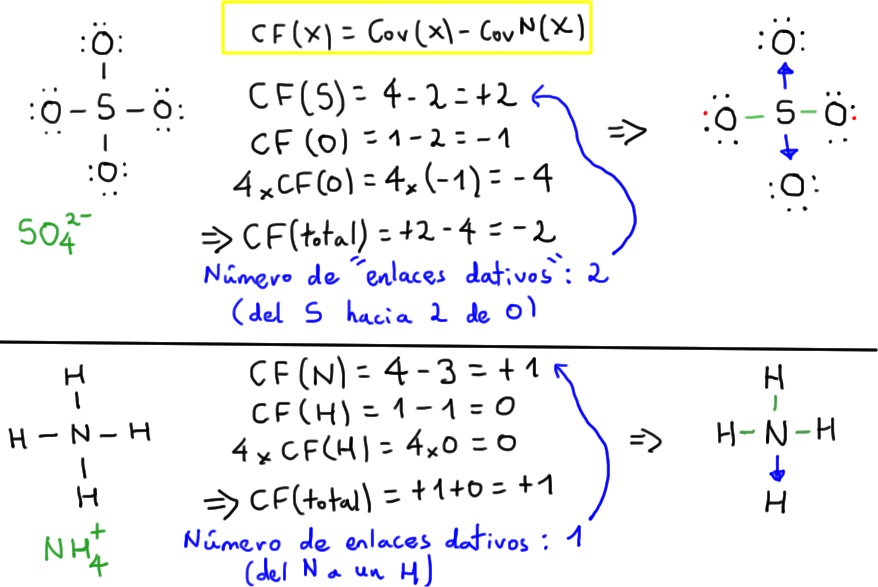 CF(x) = Cov(x) - CovN(x)
:O:
|
:O - S - O:
|
:O:
SO₄²⁻
CF(S) = 4 - 2 = +2
CF(O) = 1 - 2 = -1
4xCF(O) = 4x(-1) = -4
⇒ CF(total) = +2 - 4 = -2
Número de "enlaces dativos": 2
(del S hacia 2 de O)
⇒
:O:
↑
:O - S - O:
↓
:O:
H
|
H - N - H
|
H
NH₄⁺
CF(N) = 4 - 3 = +1
CF(H) = 1 - 1 = 0
4xCF(H) = 4x0 = 0
⇒ CF(total) = +1 + 0 = +1
Número de enlaces dativos: 1
(del N a un H)
⇒
H
|
H - N - H
↓
H